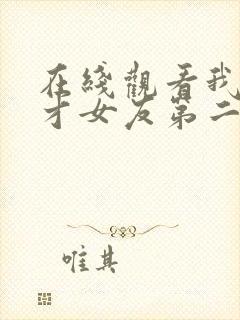 在綫觀看我
才女友第二
唯其